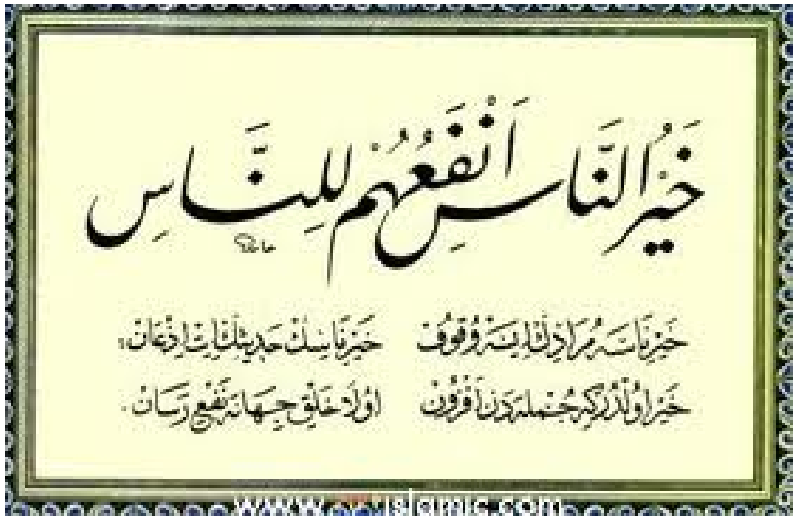 خَيْرُ النَّاسِ اَنْفَعُهُمْ لِلنَّاسِ
خير ناسه مرادك ايسه وقوف خير ناسك حديثك ات اذعان
خير اولدر كه جمله دن افزون اولا خلق جهانه نفع رسان